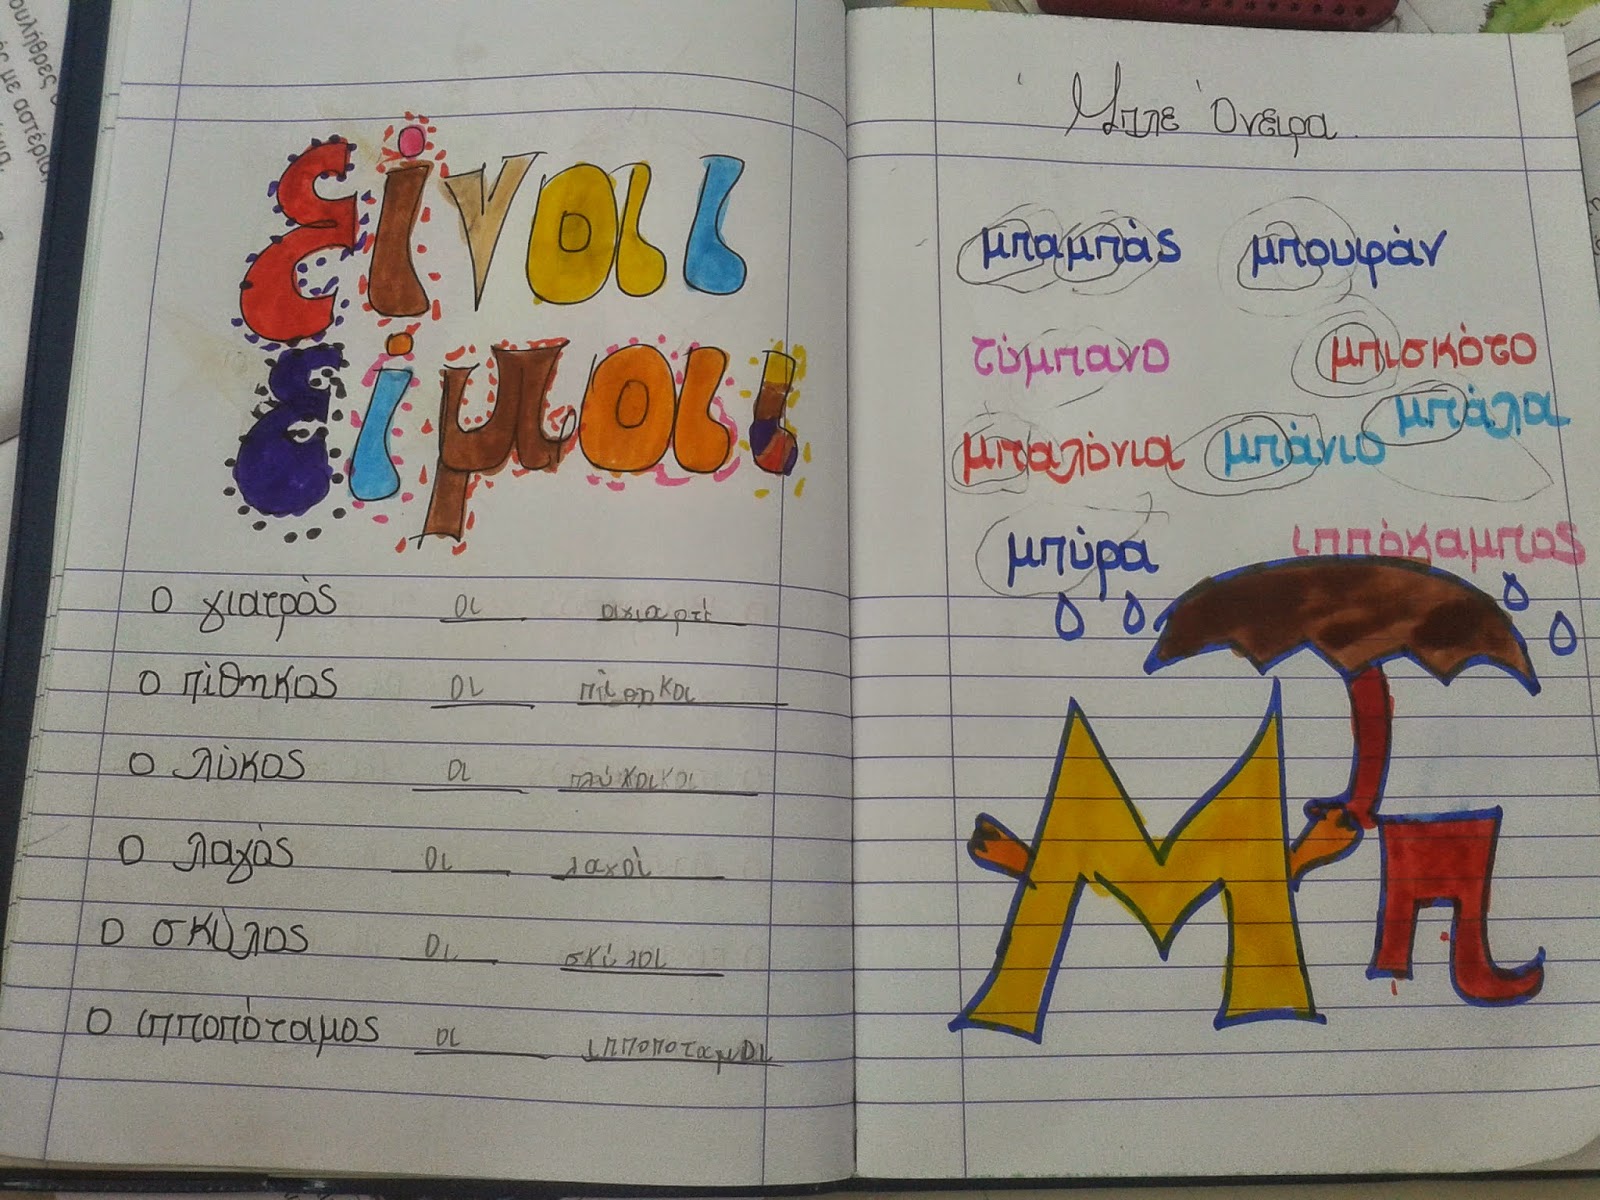 είναι
είμαι
ο γιατρός οι
ο πίθηκος οι πίθηκοι
ο λύκος οι
ο λαγός οι λαχοί
ο σκύλος οι σκύλοι
ο ιπποπόταμος οι ιπποποταμοι
Όνειρα
μπαμπάς μπουφάν
τύμπανο μπισκότο
μπάλα
μπαλόνια μπάνιο
μπύρα ιππόκαμπος
Μπ